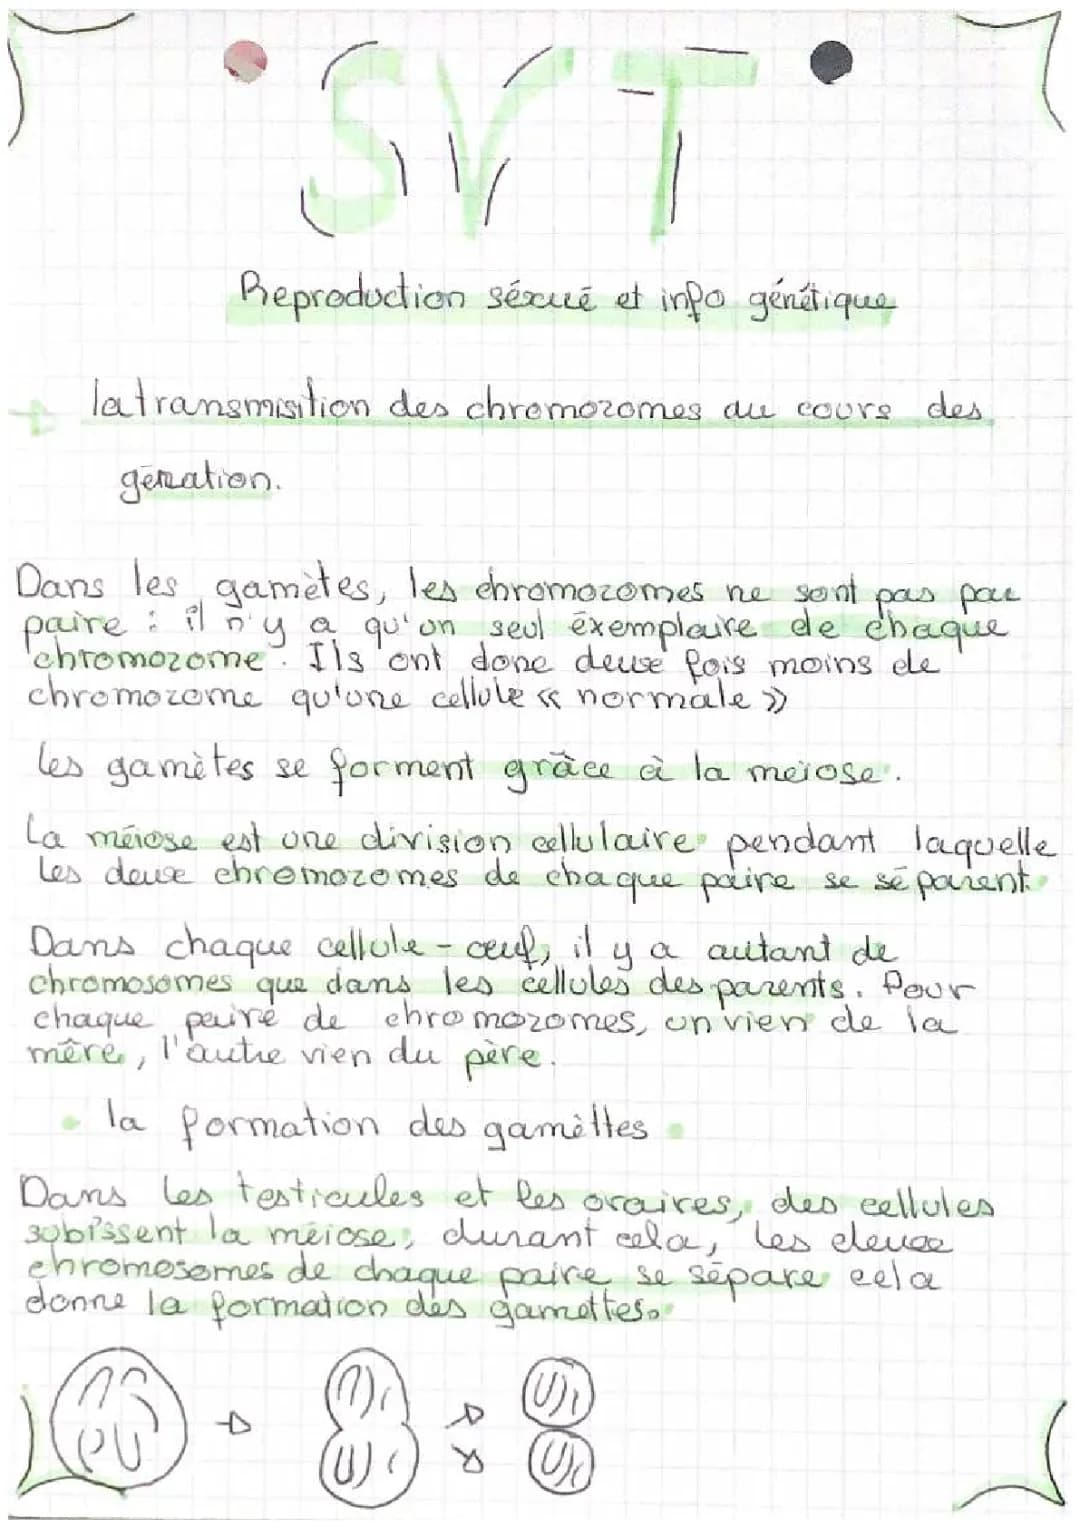 SVT
Reproduction séxué et info génétique
la transmisition des chromozomes au cours des
génation.
Dans les gamètes, les chromozomes ne sont pas par
paire : il n'y a qu'un seul éxemplaire de chaque
chromozome. Ils ont donc deuse fois moins de
chromozome qu'une cellule « normale »
les gamètes se forment grâce à la meiose.
La méiose est une division cellulaire pendant laquelle
les deuse chromozomes de chaque paire se séparent.
Dans chaque cellule-œuf, il y a autant de
chromosomes que dans les cellules des parents. Pour
chaque paire de chromozomes, un vien de la
mère, l'autre vien du père.
la formation des gamèttes
Dans les testicules et les oraires, des cellules
subissent la méiose, durant cela, les deuse
chromosomes de chaque paire se sépare cela
donne la formation des gamettes.